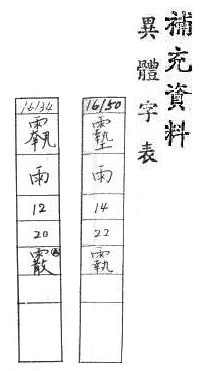 補充資料
異體字表
16150
雨
14
22
16134
雨
12
20
霰